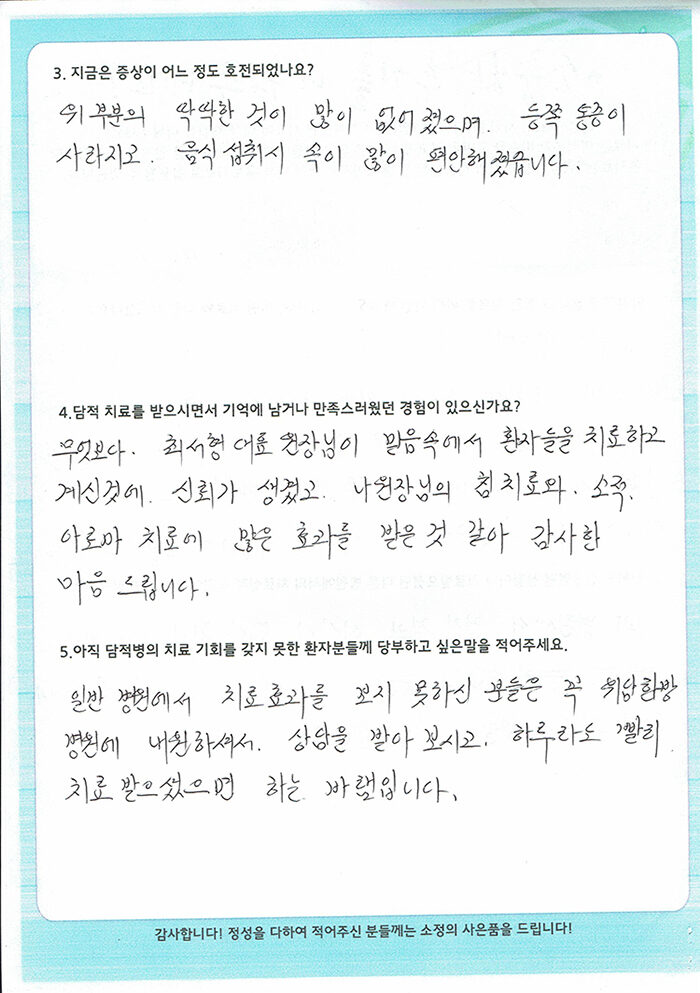 3. 지금은 증상이 어느 정도 호전되었나요?
위 부분의 딱딱한 것이 많이 없어졌으며. 등쪽 통증이
사라지고. 음식 섭취시 속이 많이 편안해졌습니다.
4.담적 치료를 받으시면서 기억에 남거나 만족스러웠던 경험이 있으신가요?
무엇보다. 최서형 대표 원장님이 믿음속에서 환자들을 치료하고
계신것에. 신뢰가 생겼고. 나원장님의 침치료와. 소적.
아로마 치료에 많은 효과를 받은 것 같아 감사한
마음 드립니다.
5.아직 담적병의 치료 기회를 갖지 못한 환자분들께 당부하고 싶은말을 적어주세요.
일반 병원에서 치료효과를 보지 못하신 분들은 꼭 위담한방
병원에 내원하셔서. 상담을 받아 보시고. 하루라도 빨리
치료 받으셨으면 하는 바램입니다.
감사합니다! 정성을 다하여 적어주신 분들께는 소정의 사은품을 드립니다!